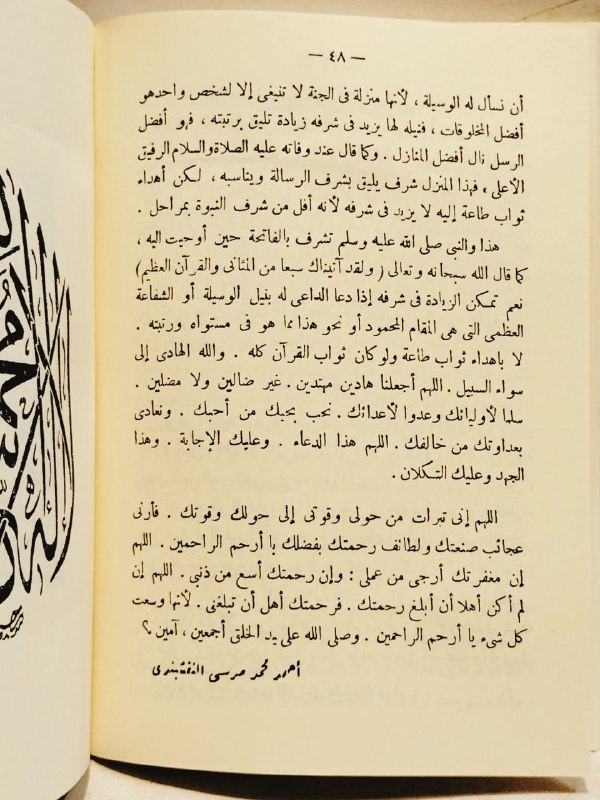 — ٤٨ —
أن نسأل له الوسيلة ، لأنها منزلة فى الجنة لا تنبغى إلا لشخص واحد هو
أفضل المخلوقات ، فنيله لها يزيد فى شرفه زيادة تليق برتبته ، فهو أفضل
الرسل نال أفضل المنازل . وكما قال عند وفاته عليه الصلاة والسلام الرفيق
الأعلى ، فهذا المنزل شرف يليق بشرف الرسالة ويناسبه ، لكن أهداء
ثواب طاعة إليه لا يزيد فى شرفه لأنه أقل من شرف النبوة بمراحل .
هذا والنبى صلى الله عليه وسلم تشرف بالفاتحة حين أوحيت اليه ،
كما قال الله سبحانه وتعالى ( ولقد آتيناك سبعا من المثانى والقرآن العظيم )
نعم تمكن الزيادة فى شرفه إذا دعا الداعى له بنيل الوسيلة أو الشفاعة
العظمى التى هى المقام المحمود أو نحو هذا مما هو فى مستواه ورتبته .
لا باهداء ثواب طاعة ولو كان ثواب القرآن كله . والله الهادى إلى
سواء السبيل . اللهم أجعلنا هادين مهتدين . غير ضالين ولا مضلين .
سلما لأوليائك وعدوا لأعدائك . نحب بحبك من أحبك . ونعادى
بعداوتك من خالفك . اللهم هذا الدعاء . وعليك الإجابة . وهذا
الجهد وعليك التكلان .
اللهم إنى تبرات من حولى وقوتى إلى حولك وقوتك . فأرنى
عجائب صنعتك ولطائف رحمتك بفضلك يا أرحم الراحمين . اللهم
إن مغفرتك أرجى من عملى : وإن رحمتك أسع من ذنبى . اللهم إن
لم أكن أهلا أن أبلغ رحمتك . فرحمتك أهل أن تبلغنى . لأنها وسعت
كل شىء يا أرحم الراحمين . وصلى الله على يد الخلق أجمعين ، آمين ؟
أحمد محمد مرسى النقشبندى